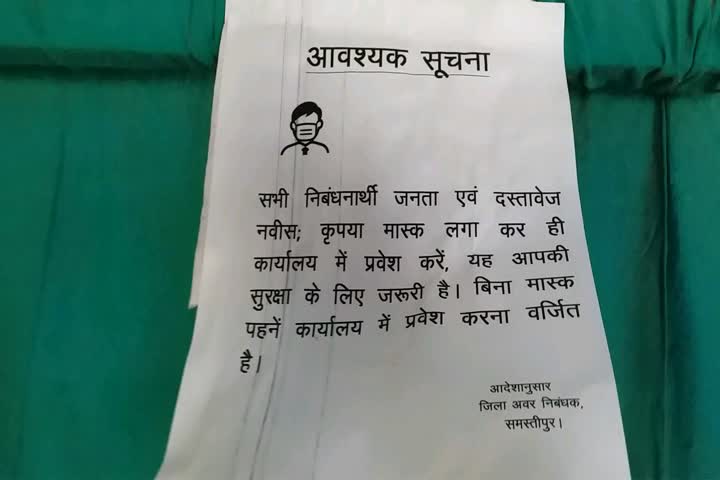 आवश्यक सूचना
सभी निबंधनार्थी जनता एवं दस्तावेज
नवीस; कृपया मास्क लगा कर ही
कार्यालय में प्रवेश करें, यह आपकी
सुरक्षा के लिए जरूरी है। बिना मास्क
पहनें कार्यालय में प्रवेश करना वर्जित
है।
आदेशानुसार
जिला अवर निबंधक,
समस्तीपुर।